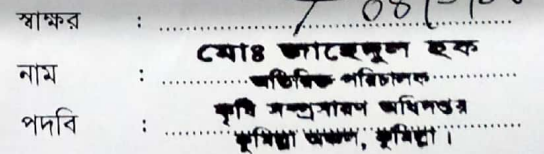 স্বাক্ষর :
নাম : মোঃ হক
অতিরিক্ত পরিচালক
পদবি : কৃষি সম্প্রসারণ অধিদপ্তর
কুমিল্লা অঞ্চল, কুমিল্লা।